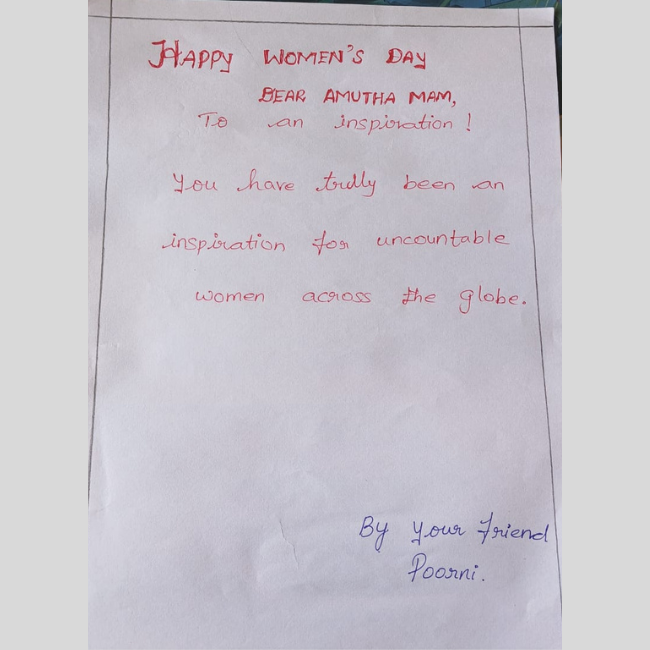 HAPPY WOMEN'S DAY
DEAR AMUTHA MAM,
To an inspiration !
You have trully been an
inspiration for uncountable
women across the globe.
By your friend
Poorni.